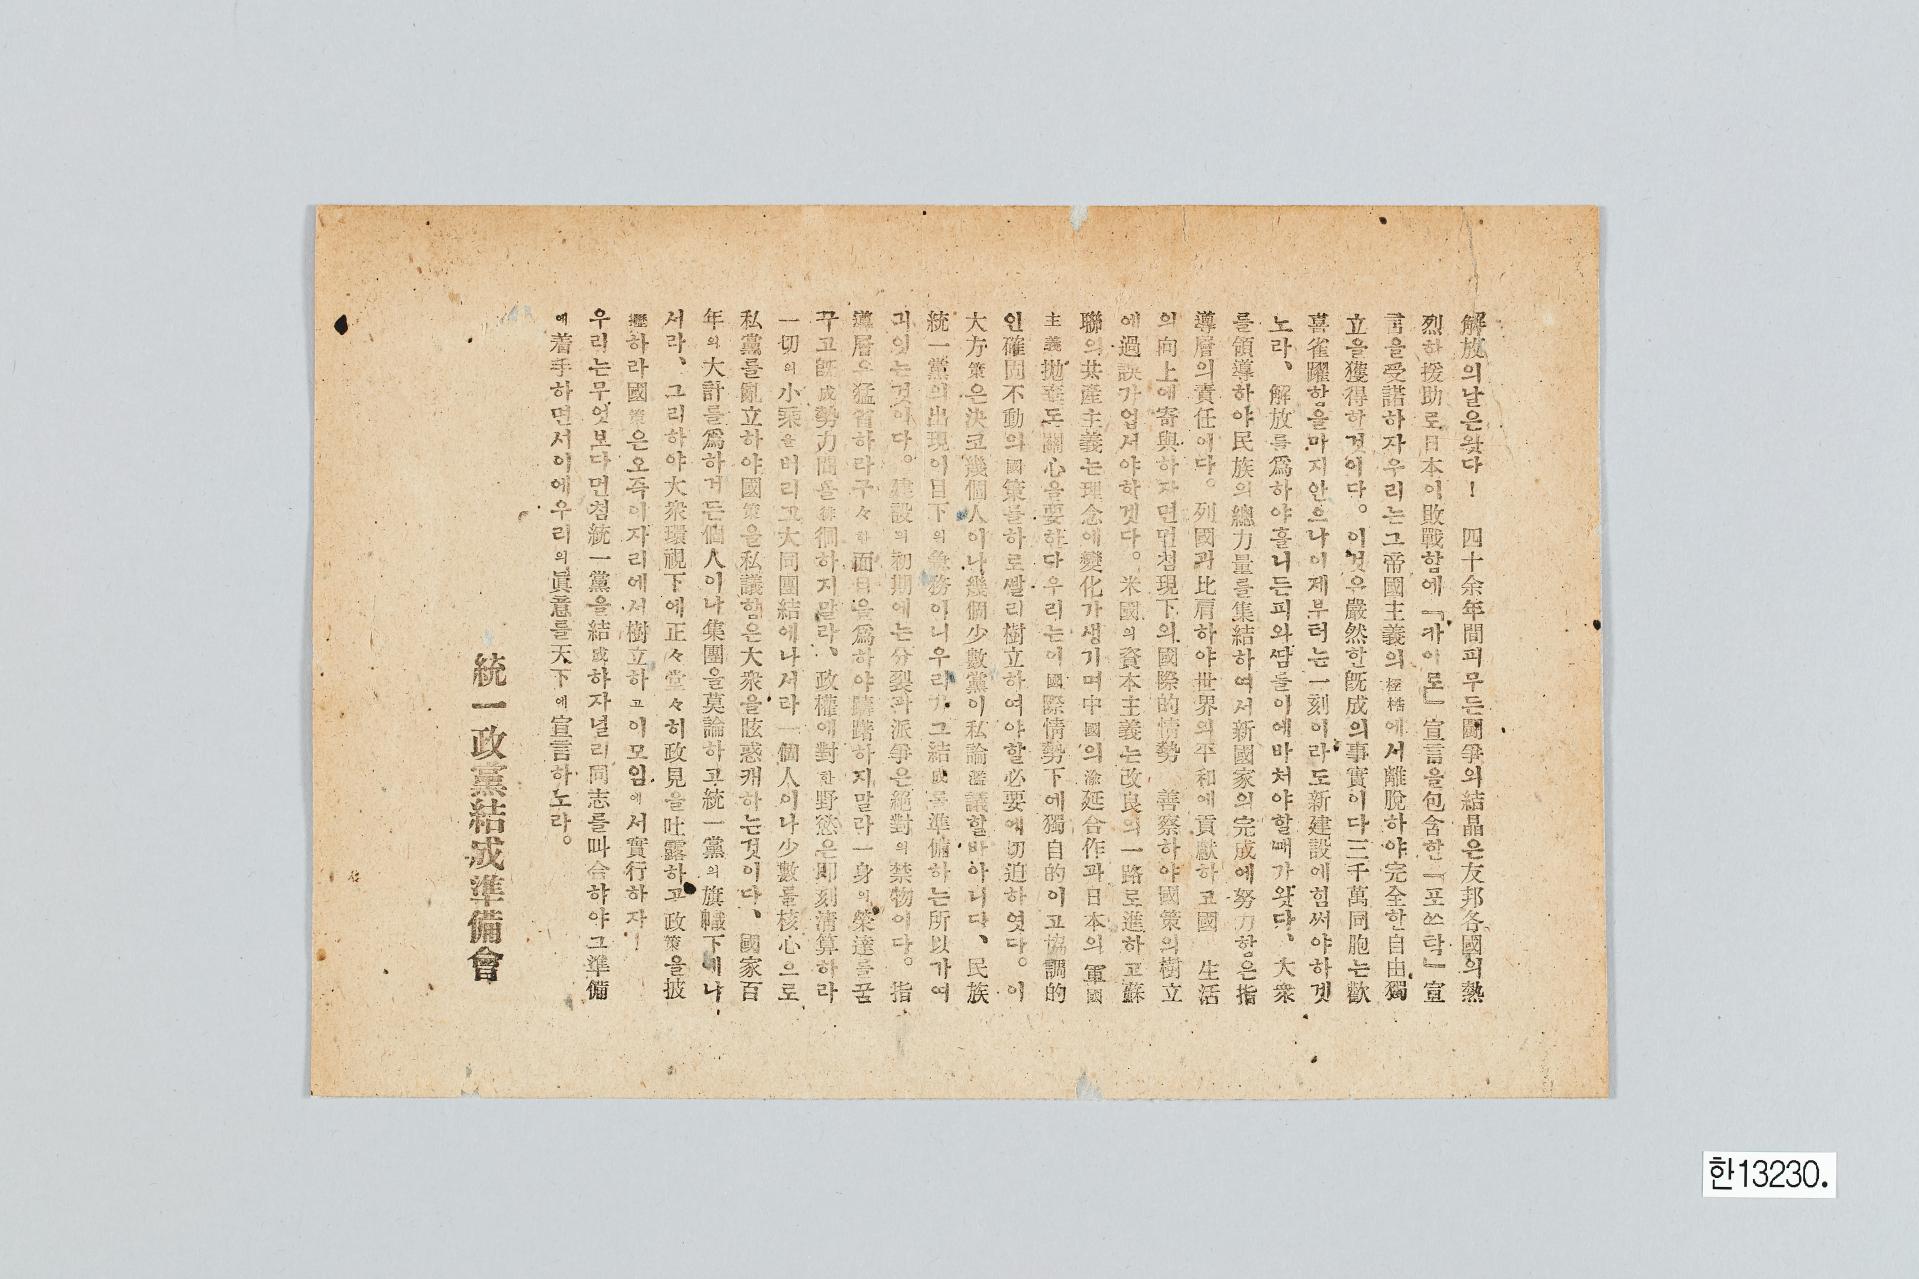 解放의날은왓다! 四十余年間피무든鬪爭의結晶은友邦各國의熱
烈한援助로日本이敗戰함에「카이로」宣言을包含한「포쓰탐」宣
言을受諾하자우리는그帝國主義의桎梏에서離脫하야完全한自由獨
立을獲得한것이다。이것은嚴然한旣成의事實이다三千萬同胞는歡
喜雀躍함을마지안으나이제부터는一刻이라도新建設에힘써야하겟
노라、解放를爲하야흘니든피와땀을이에바처야할때가왓다、大衆
를領導하야民族의總力量를集結하여서新國家의完成에努力함은指
導層의責任이다。列國과比肩하야世界의平和에貢獻하고國 生活
의向上에寄與하자면먼첨現下의國際的情勢 善察하야國策의樹立
에過誤가업서야하겟다。米國의資本主義는改良의一路로進하고蘇
聯의共產主義는理念에變化가생기며中國의 延合作과日本의軍國
主義拋棄도關心을要하다우리는이國際情勢下에獨自的이고協調的
인確固不動의國策을하로빨리樹立하여야할必要에切迫하엿다。이
大方策은決코幾個人이나幾個少數黨이私論濫議할바아니다、民族
統一黨의出現이目下의急務이니우리가그結成을準備하는所以가여
긔잇는것이다。建設의初期에는分裂과派爭은絕對의禁物이다。指
導層은猛省하라구々한面目을爲하야躊躇하지말라一身의榮達를꿈
꾸고旣成勢力間을徘徊하지말라、政權에對한野慾은即刻淸算하라
一切의小乘을버리고大同團結에나서라一個人이나少數를核心으로
私黨를亂立하야國策을私議함은大衆을眩惑캐하는것이다、國家百
年의大計를爲하거든個人이나集團을莫論하고統一黨의旗幟下에나
서라、그리하야大衆環視下에正々堂々히政見을吐露하고政策을披
瀝하라國策은오즉이자리에서樹立하고이모임에서實行하자!
우리는무엇보다먼첨統一黨을結成하자널리同志를叫合하야그準備
에着手하면서이에우리의眞意를天下에宣言하노라。
統一政黨結成準備會
한13230.